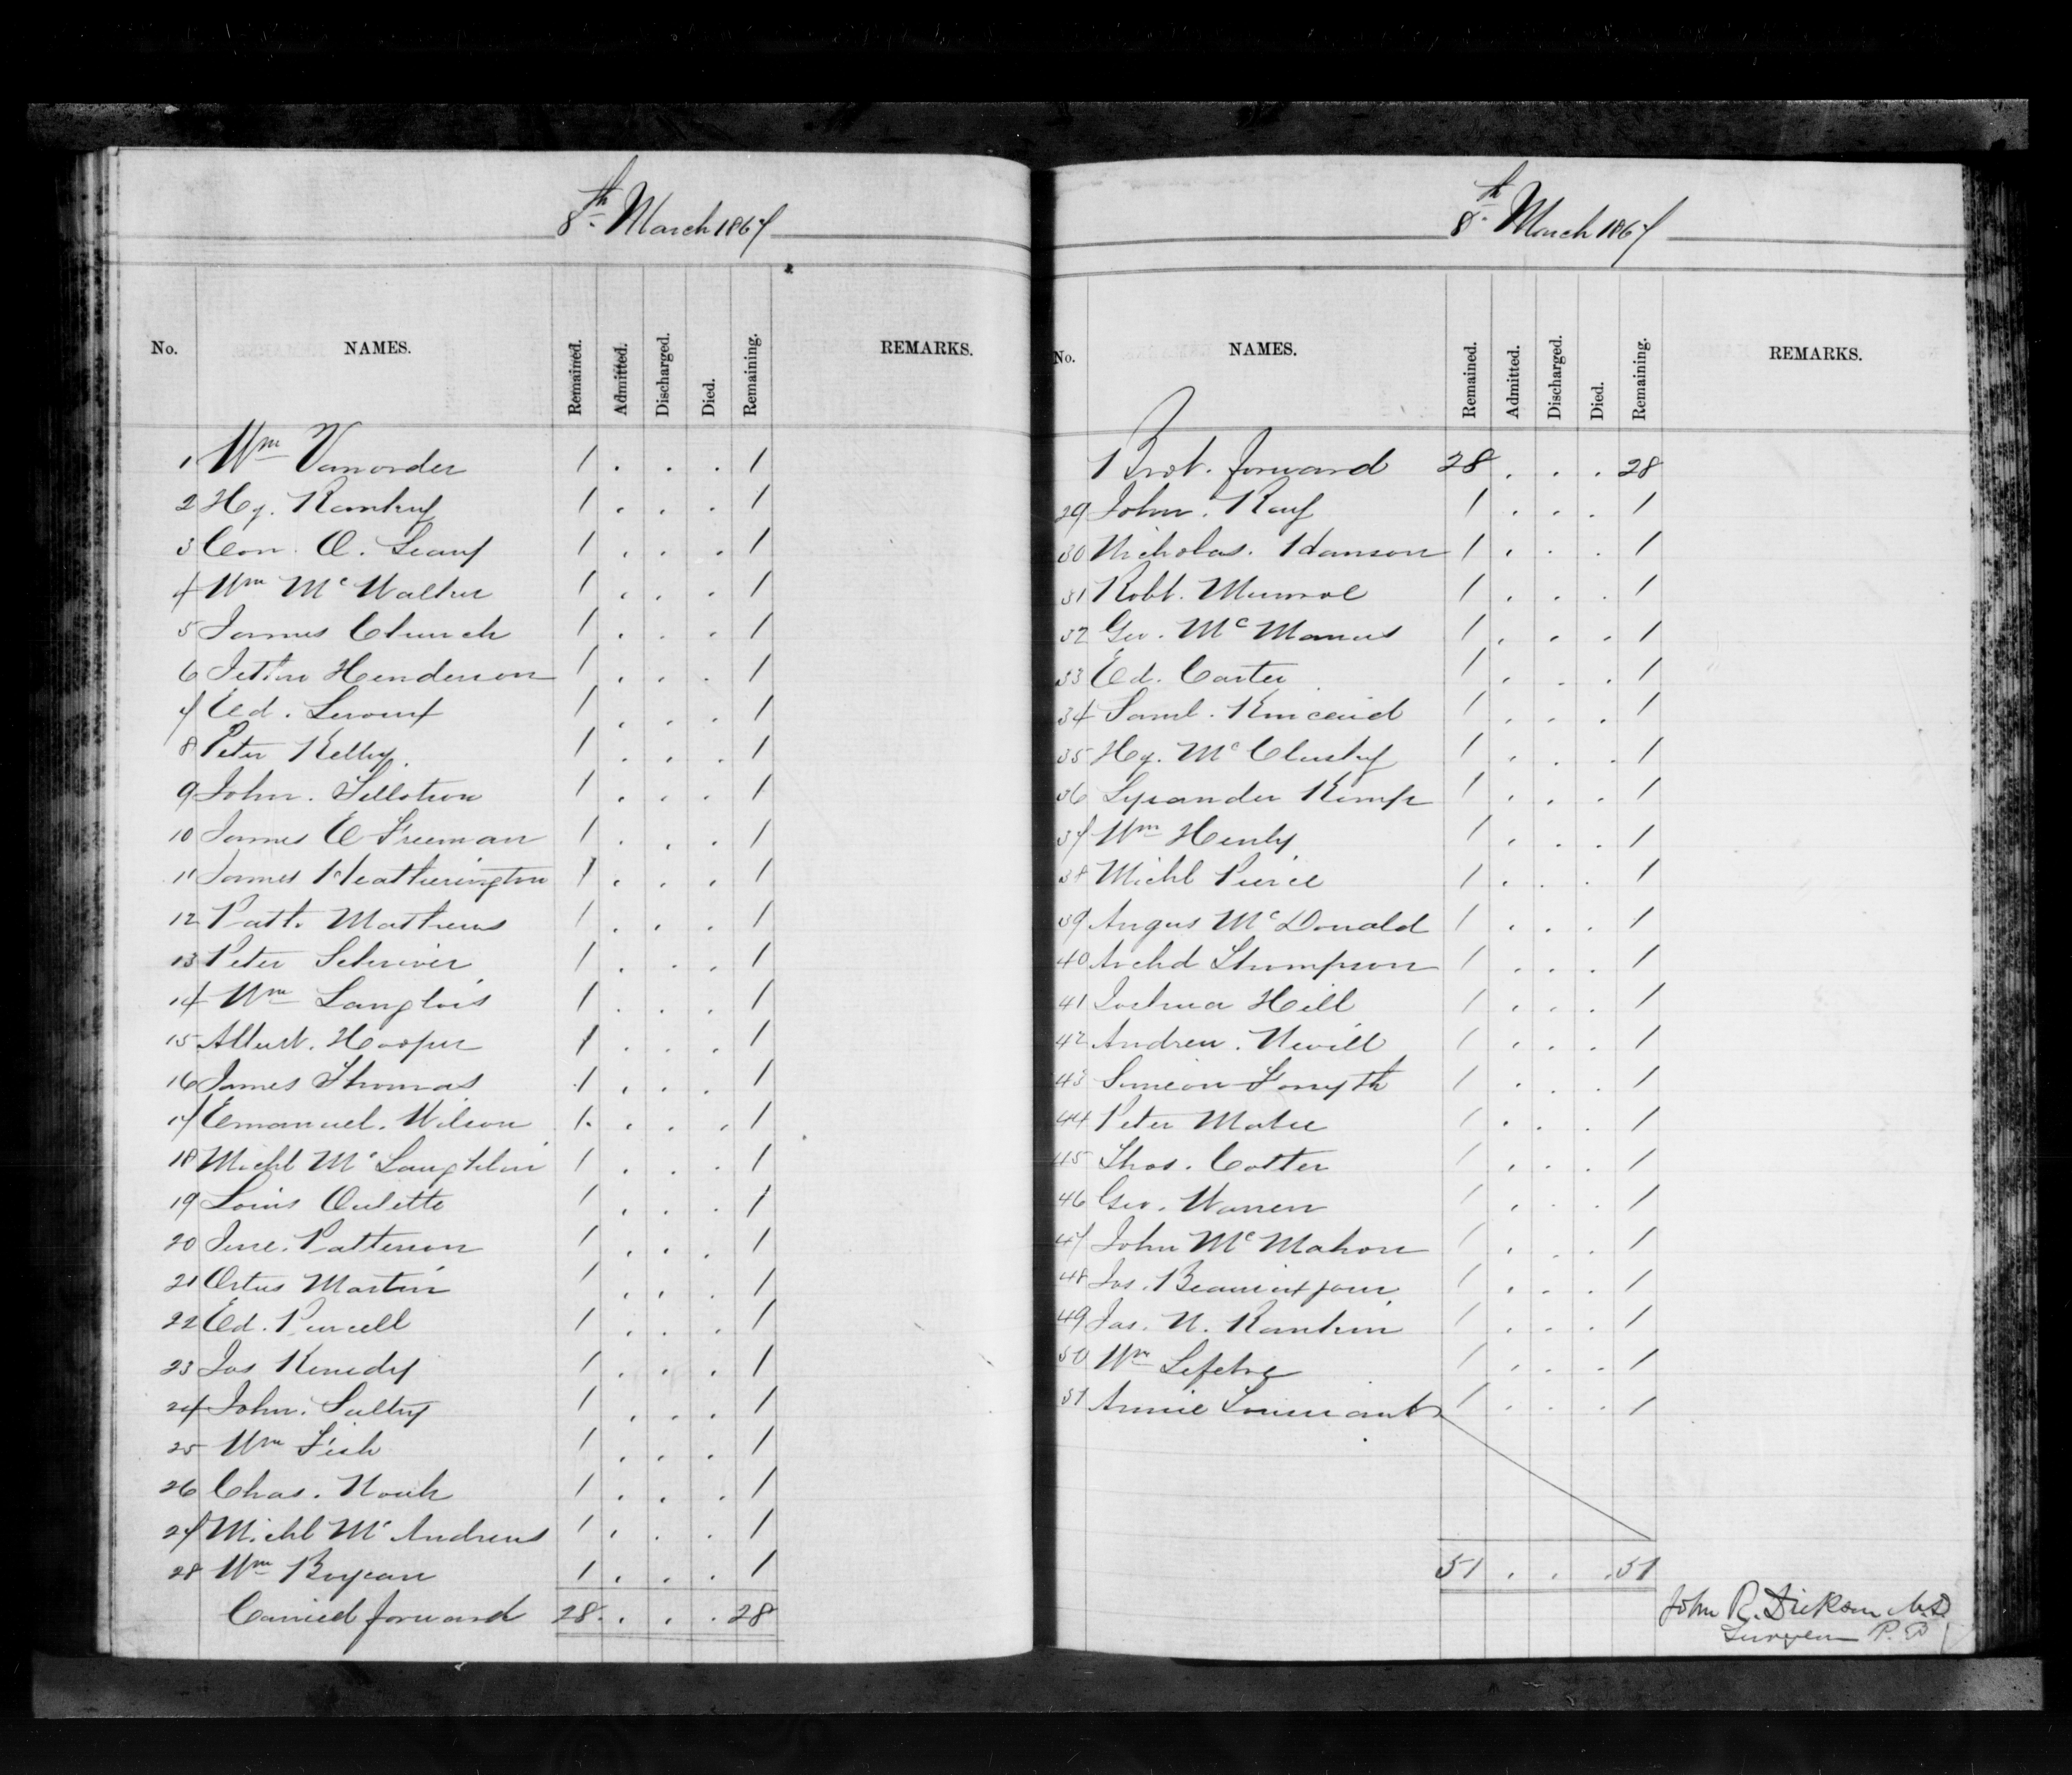 8th March 1867
No. NAMES. Remained. Admitted. Discharged. Died. Remaining. REMARKS.
1 Wm Vanorder 1 . . . 1
2 Hy. 1 . . . 1
3 Con. O. Leary 1 . . . 1
4 Wm McWalter 1 . . . 1
5 James Church 1 . . . 1
6 Henderson 1 . . . 1
7 Ed. 1 . . . 1
8 Peter Kelly. 1 . . . 1
9 John. 1 . . . 1
10 James E Freeman 1 . . . 1
11 James Heatherington 1 . . . 1
12 Patk. Mathews 1 . . . 1
13 Peter Schriver 1 . . . 1
14 Wm Langlois 1 . . . 1
15 Albert. Hooper 1 . . . 1
16 James Thomas 1 . . . 1
17 Emanuel. Wilson 1 . . . 1
18 Michl McLaughlin 1 . . . 1
19 Louis Oulette 1 . . . 1
20 Jere. Patterson 1 . . . 1
21 Martin 1 . . . 1
22 Ed. Purcell 1 . . . 1
23 Jas Kenedy 1 . . . 1
24 John. 1 . . . 1
25 Wm Fish 1 . . . 1
26 Chas. 1 . . . 1
27 Michl McAndrews 1 . . . 1
28 Wm 1 . . . 1
Carried forward 28 . . . 28
8th March 1867
No. NAMES. Remained. Admitted. Discharged. Died. Remaining. REMARKS.
Brot. forward 28 . . . 28
29 John. 1 . . . 1
30 Nicholas. 1 . . . 1
31 Robt. Munroe 1 . . . 1
32 Geo. McManus 1 . . . 1
33 Ed. Carter 1 . . . 1
34 Saml. Kincaid 1 . . . 1
35 Hy. McClusky 1 . . . 1
36 Lysander Kemp 1 . . . 1
37 Wm Henly 1 . . . 1
38 Michl Pierce 1 . . . 1
39 Angus McDonald 1 . . . 1
40 Archd Thompson 1 . . . 1
41 Joshua Hill 1 . . . 1
42 Andrew. Nevill 1 . . . 1
43 Simeon Forsyth 1 . . . 1
44 Peter 1 . . . 1
45 Thos. Cotter 1 . . . 1
46 Geo. Warren 1 . . . 1
47 John McMahon 1 . . . 1
48 Jos. 1 . . . 1
49 Jas. N. Rankin 1 . . . 1
50 Wm Lefebre 1 . . . 1
51 Annie 1 . . . 1
51 . . . 51
John R. Dickson M.D.
Surgeon P. P